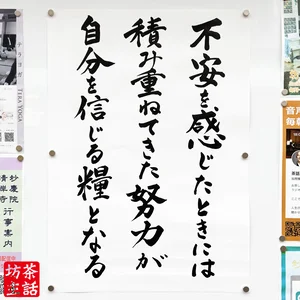 不安を感じたときには
積み重ねてきた努力が
自分を信じる糧となる
テラヨガ
TERA YOGA
妙慶院
清岸寺
行事案内
坊主
茶話